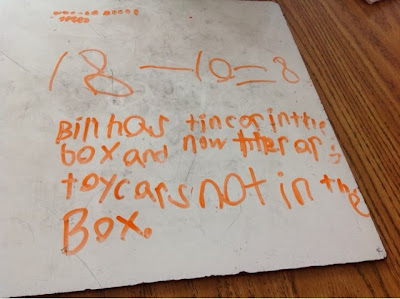 18 - 10 = 8
Bill has tin car in the
box and now ther ar
toy cars not in the
Box.